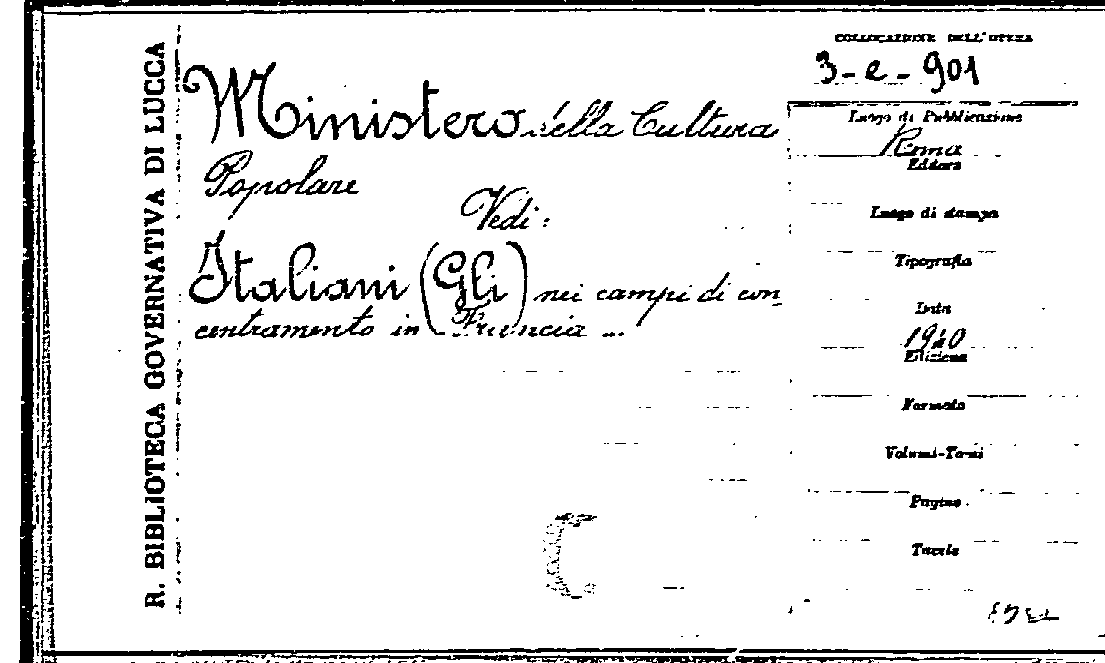 R. BIBLIOTECA GOVERNATIVA DI LUCCA
Ministero della Cultura
Popolare
Vedi:
Italiani (Gli) nei campi di con_
centramento in Francia ...
COLLOCAZIONE DELL'OPERA
3-e-901
Luogo di Pubblicazione
Roma
Editore
Luogo di stampa
Tipografia
Data
1940
Edizione
Formato
Volumi-Tomi
Pagine
Tavole